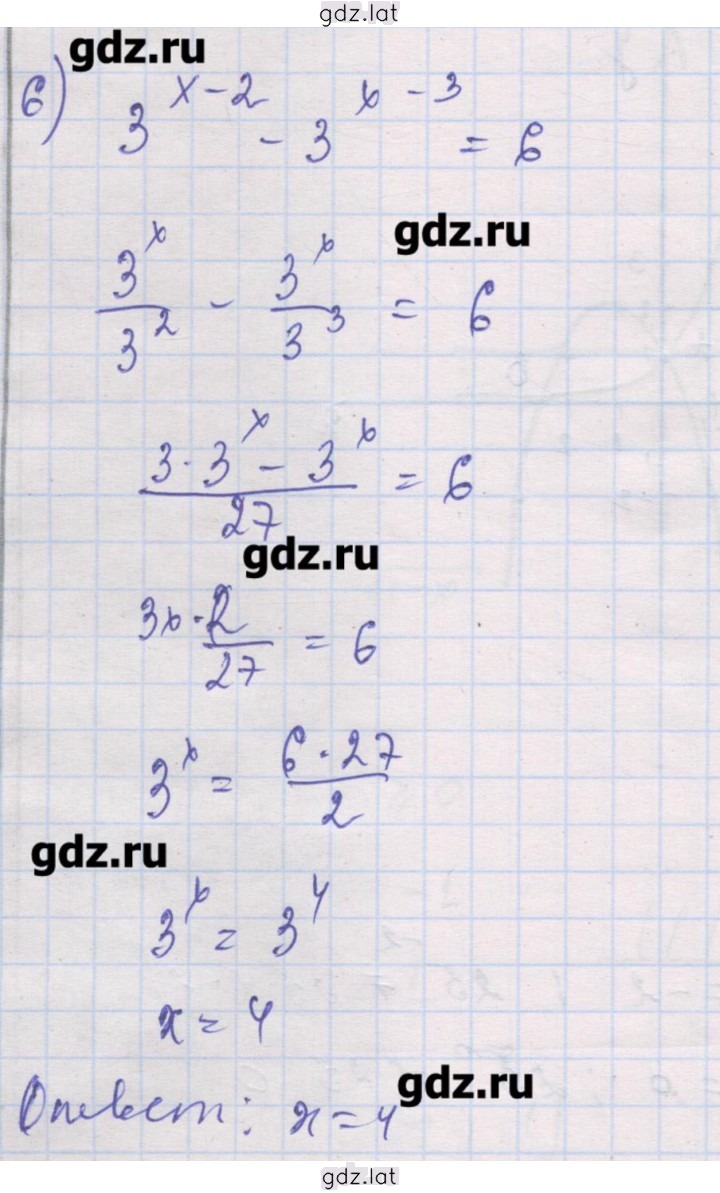 gdz.lat
gdz.ru
6) 3^{x-2} - 3^{x-3} = 6
gdz.ru
\frac{3^x}{3^2} - \frac{3^x}{3^3} = 6
\frac{3 \cdot 3^x - 3^x}{27} = 6
gdz.ru
3x \cdot \frac{2}{27} = 6
3^x = \frac{6 \cdot 27}{2}
gdz.ru
3^x = 3^4
x = 4
gdz.ru
Ответ: x = 4
gdz.lat